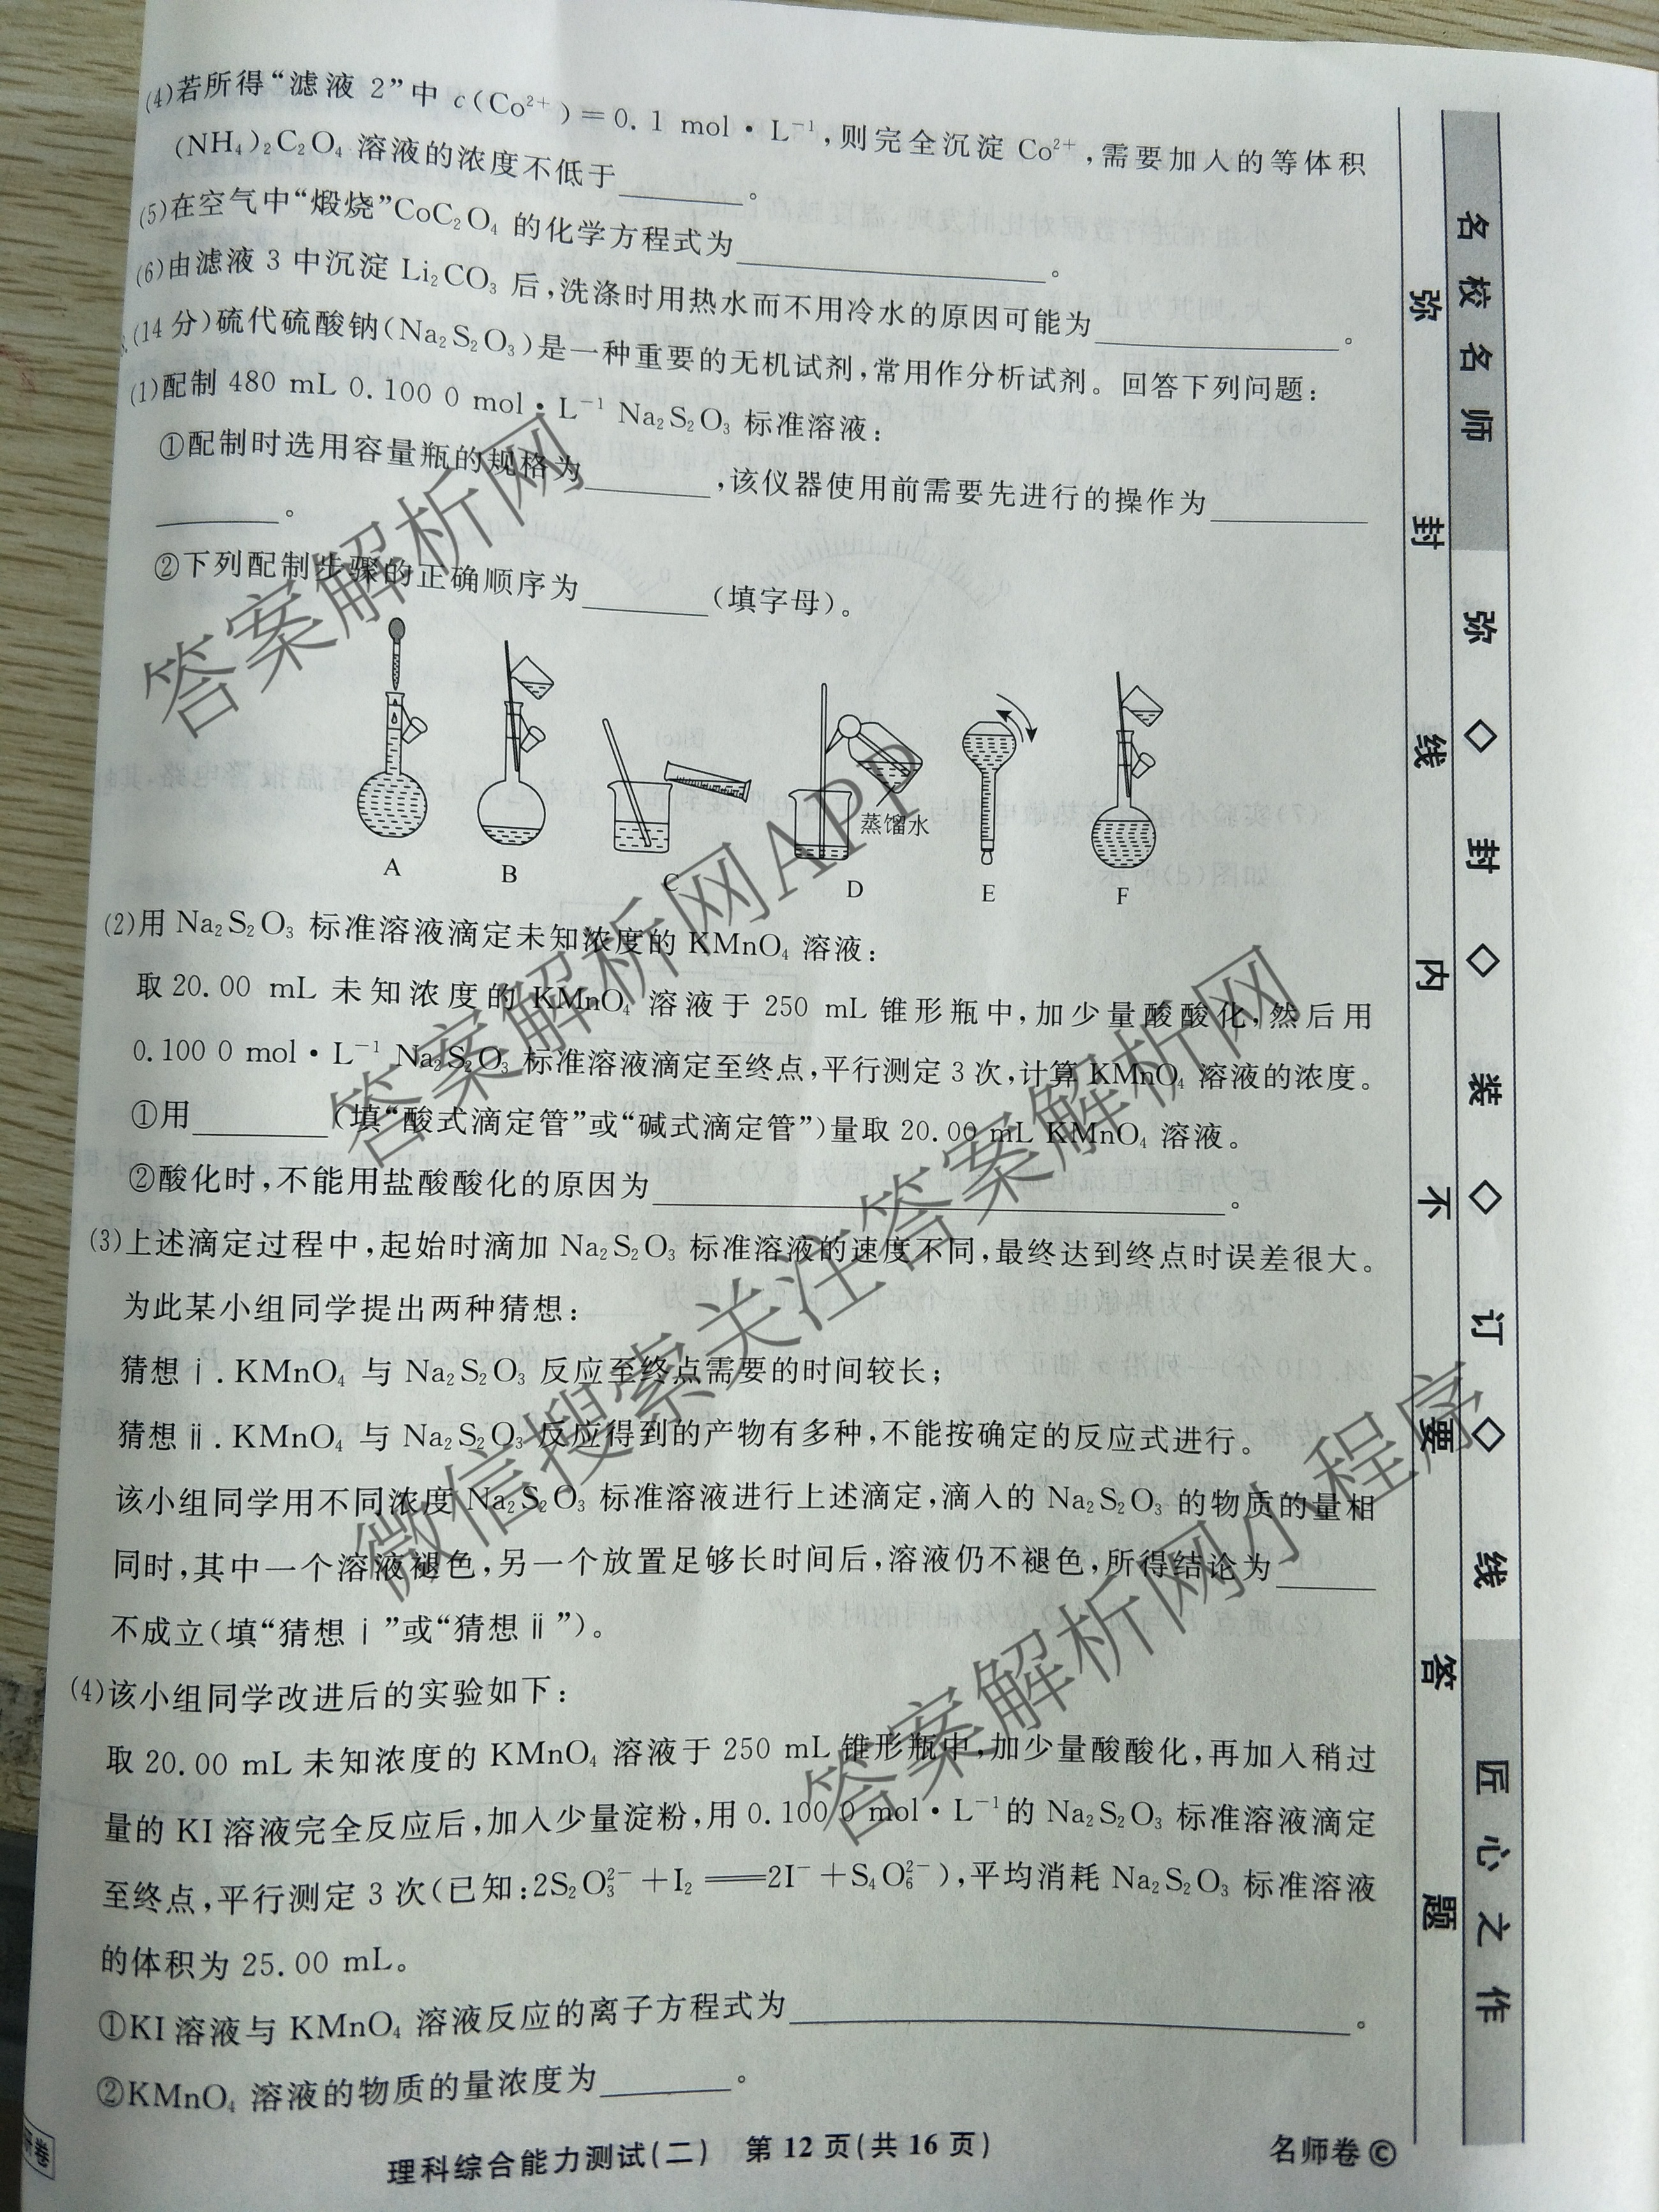 (4)若所得“滤液 2”中 c(Co²⁺)=0.1 mol·L⁻¹,则完全沉淀 Co²⁺,需要加入的等体积
(NH₄)₂C₂O₄ 溶液的浓度不低于________。
(5)在空气中“煅烧”CoC₂O₄ 的化学方程式为________________。
(6)由滤液 3 中沉淀 Li₂CO₃ 后,洗涤时用热水而不用冷水的原因可能为________________。
(14 分)硫代硫酸钠(Na₂S₂O₃)是一种重要的无机试剂,常用作分析试剂。回答下列问题:
(1)配制 480 mL 0.100 0 mol·L⁻¹ Na₂S₂O₃ 标准溶液:
①配制时选用容量瓶的规格为________,该仪器使用前需要先进行的操作为________
________。
②下列配制步骤的正确顺序为________(填字母)。
蒸馏水
A B C D E F
(2)用 Na₂S₂O₃ 标准溶液滴定未知浓度的 KMnO₄ 溶液:
取 20.00 mL 未知浓度的 KMnO₄ 溶液于 250 mL 锥形瓶中,加少量酸酸化,然后用
0.100 0 mol·L⁻¹ Na₂S₂O₃ 标准溶液滴定至终点,平行测定 3 次,计算 KMnO₄ 溶液的浓度。
①用________(填“酸式滴定管”或“碱式滴定管”)量取 20.00 mL KMnO₄ 溶液。
②酸化时,不能用盐酸酸化的原因为________________。
(3)上述滴定过程中,起始时滴加 Na₂S₂O₃ 标准溶液的速度不同,最终达到终点时误差很大。
为此某小组同学提出两种猜想:
猜想ⅰ.KMnO₄ 与 Na₂S₂O₃ 反应至终点需要的时间较长;
猜想ⅱ.KMnO₄ 与 Na₂S₂O₃ 反应得到的产物有多种,不能按确定的反应式进行。
该小组同学用不同浓度 Na₂S₂O₃ 标准溶液进行上述滴定,滴入的 Na₂S₂O₃ 的物质的量相
同时,其中一个溶液褪色,另一个放置足够长时间后,溶液仍不褪色,所得结论为________
不成立(填“猜想ⅰ”或“猜想ⅱ”)。
(4)该小组同学改进后的实验如下:
取 20.00 mL 未知浓度的 KMnO₄ 溶液于 250 mL 锥形瓶中,加少量酸酸化,再加入稍过
量的 KI 溶液完全反应后,加入少量淀粉,用 0.100 0 mol·L⁻¹的 Na₂S₂O₃ 标准溶液滴定
至终点,平行测定 3 次(已知:2S₂O₃²⁻+I₂══2I⁻+S₄O₆²⁻),平均消耗 Na₂S₂O₃ 标准溶液
的体积为 25.00 mL。
①KI 溶液与 KMnO₄ 溶液反应的离子方程式为________________。
②KMnO₄ 溶液的物质的量浓度为________。
理科综合能力测试(二) 第 12 页(共 16 页)
名师卷©
弥封线内不要答题
名校名师 弥◇封◇装◇订◇线 匠心之作
答案解析网
答案解析网APP
微信搜索关注答案解析网
答案解析网小程序